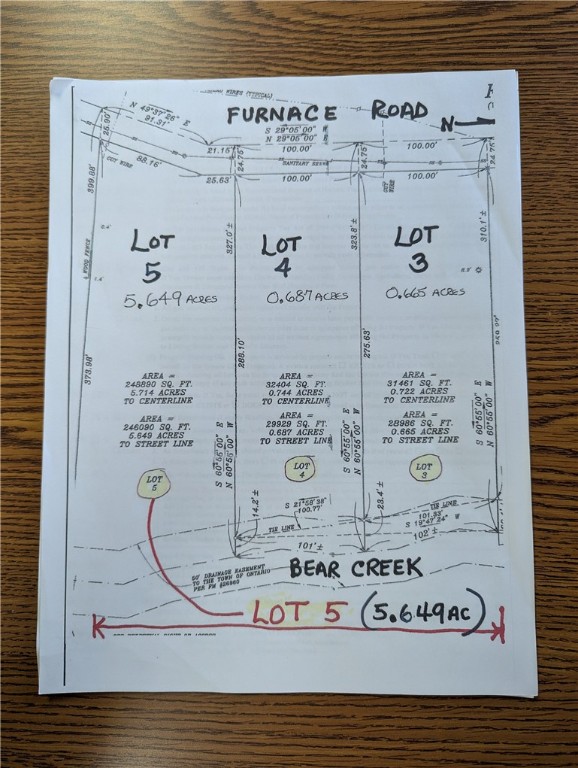 FURNACE ROAD
N
N 49°37'26" E
91.31'
25.90'
S 29°05'00" W
N 29°05'00" E
21.15'
100.00'
100.00'
88.16'
24.75'
SANITARY SEWER
24.75'
24.75'
GUY WIRE
25.63'
100.00'
100.00'
GUY WIRE
399.88'
327.0' ±
323.8' ±
310.1' ±
LOT
5
5.649 ACRES
LOT
4
0.687 ACRES
LOT
3
0.665 ACRES
WOOD FENCE
373.98'
288.10'
275.63'
AREA =
248890 SQ. FT.
5.714 ACRES
TO CENTERLINE
AREA =
246090 SQ. FT.
5.649 ACRES
TO STREET LINE
AREA =
32404 SQ. FT.
0.744 ACRES
TO CENTERLINE
AREA =
29929 SQ. FT.
0.687 ACRES
TO STREET LINE
AREA =
31461 SQ. FT.
0.722 ACRES
TO CENTERLINE
AREA =
28986 SQ. FT.
0.665 ACRES
TO STREET LINE
S 60°55'00" E
N 60°55'00" W
S 60°55'00" E
N 60°55'00" W
S 60°55'00" E
N 60°55'00" W
LOT
5
LOT
4
LOT
3
14.2' ±
S 21°58'38"
100.77'
TIE LINE
23.4' ±
TIE LINE
101.33'
S 19°47'24" W
101' ±
102' ±
BEAR CREEK
50' DRAINAGE EASEMENT
TO THE TOWN OF ONTARIO
LOT 5 (5.649 AC)